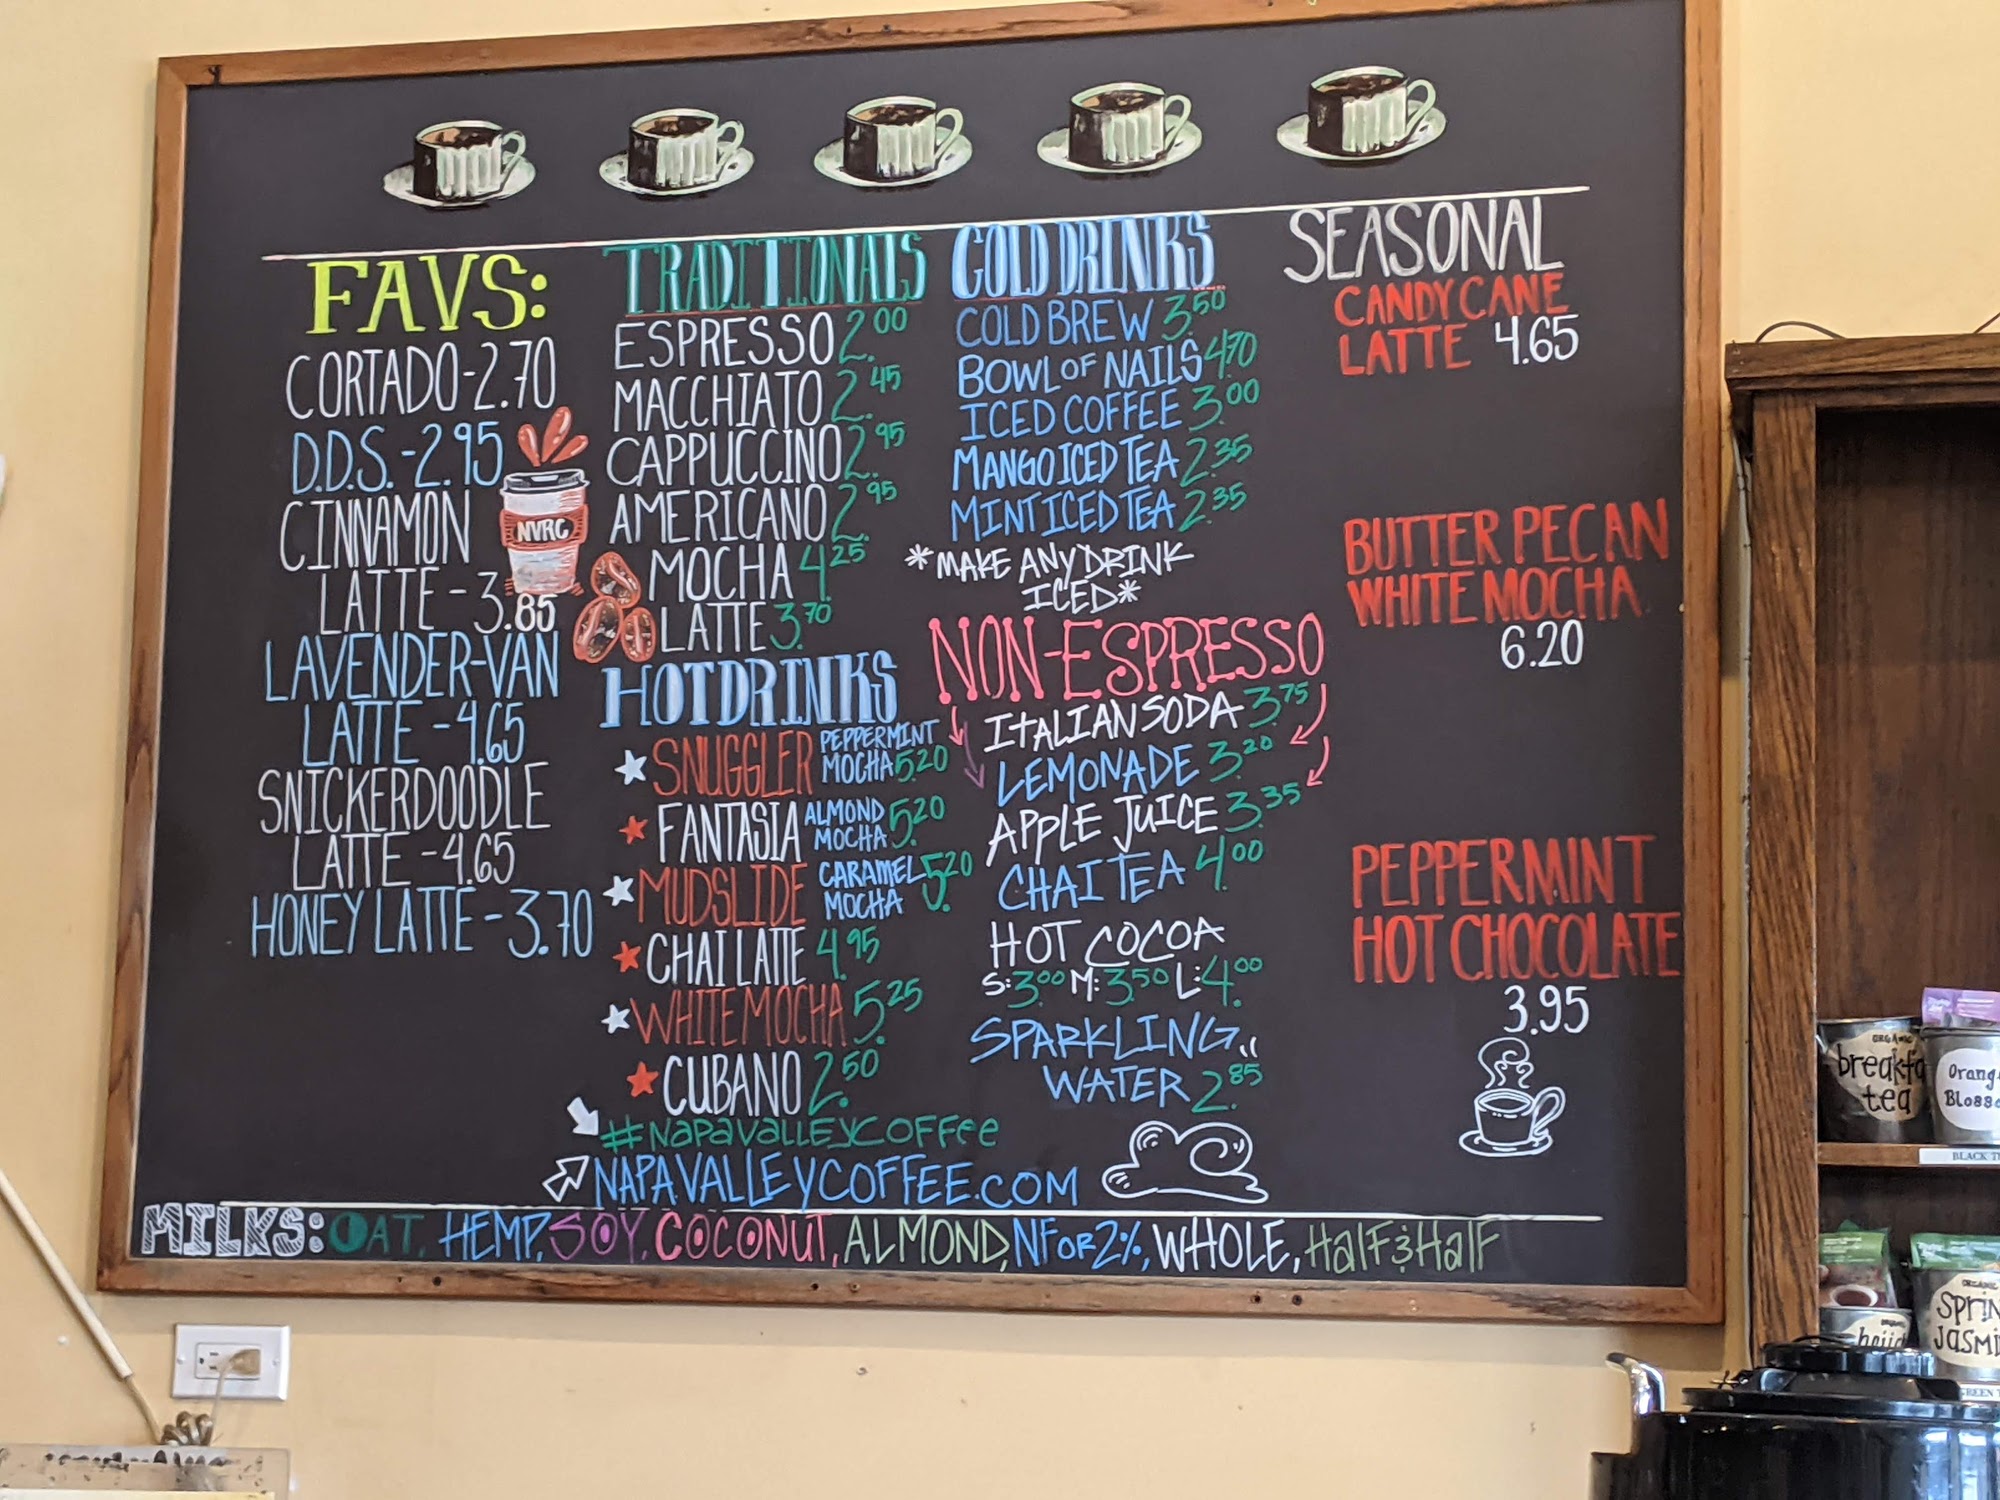 FAVS:
CORTADO-2.70
D.D.S.-2.95
CINNAMON
LATTE - 3.85
LAVENDER-VAN
LATTE - 4.65
SNICKERDOODLE
LATTE - 4.65
HONEY LATTE - 3.70
NVRC
TRADITIONALS
ESPRESSO 2.00
MACCHIATO 2.45
CAPPUCCINO 2.95
AMERICANO 2.95
MOCHA 4.25
LATTE 3.70
HOT DRINKS
SNUGGLER PEPPERMINT
MOCHA 5.20
FANTASIA ALMOND
MOCHA 5.20
MUDSLIDE CARAMEL
MOCHA 5.20
CHAI LATTE 4.95
WHITE MOCHA 5.25
CUBANO 2.50
#NAPAVALLEYCOFFEE
NAPAVALLEYCOFFEE.COM
COLD DRINKS
COLD BREW 3.50
BOWL OF NAILS 4.70
ICED COFFEE 3.00
MANGO ICED TEA 2.35
MINT ICED TEA 2.35
*MAKE ANY DRINK
ICED*
NON-ESPRESSO
ITALIAN SODA 3.75
LEMONADE 3.20
APPLE JUICE 3.35
CHAI TEA 4.00
HOT COCOA
S: 3.00 M: 3.50 L: 4.00
SPARKLING
WATER 2.85
SEASONAL
CANDY CANE
LATTE 4.65
BUTTER PECAN
WHITE MOCHA
6.20
PEPPERMINT
HOT CHOCOLATE
3.95
MILKS: OAT, HEMP, SOY, COCONUT, ALMOND, NF OR 2%, WHOLE, HALF & HALF
ORGANIC
breakfa
tea
Orang
Blosso
BLACK T
ORGANIC
SPRIN
JASMI
GREEN T